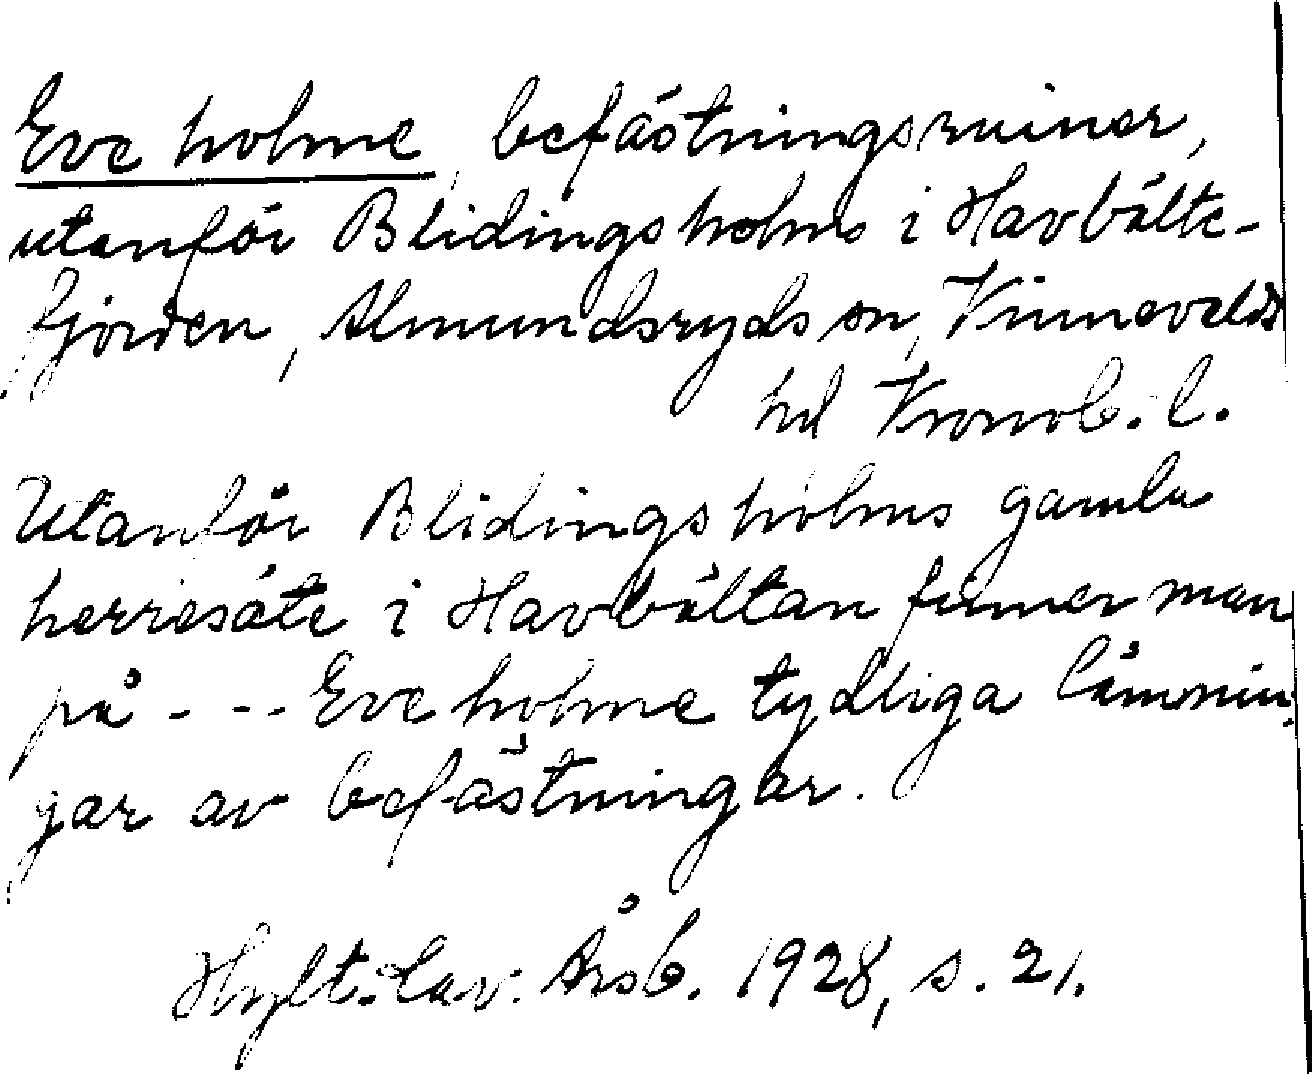 Eve holme, befästningsruiner,
utanför Blidingsholms i Havbälte-
fjorden, Almundsryds sn, Kinnevalds
hd Kronob. l.
Utanför Blidingsholms gamla
herresäte i Havbältan finner man
på - - - Eve holme tydliga lämnin-
gar av befästningar.
Hylt.-Cav. Årsb. 1928, s. 21.